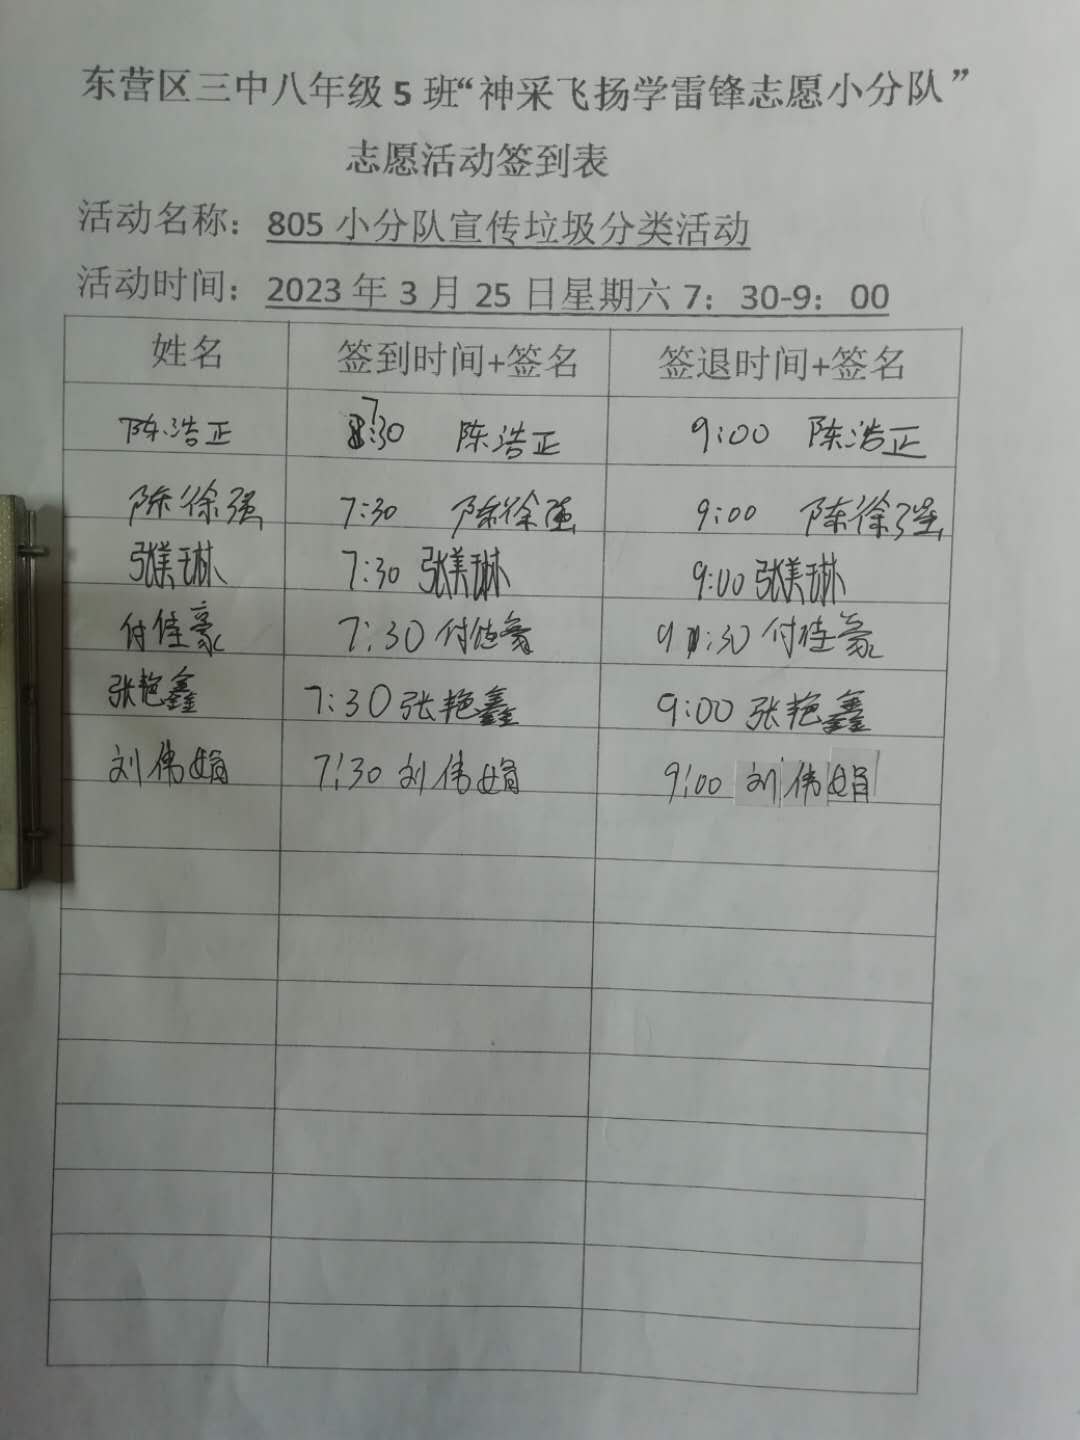 东营区三中八年级5班“神采飞扬学雷锋志愿小分队”
志愿活动签到表
活动名称：805小分队宣传垃圾分类活动
活动时间：2023年3月25日星期六7：30-9：00
姓名 签到时间+签名 签退时间+签名
陈浩正 7:30 陈浩正 9:00 陈浩正
陈徐强 7:30 陈徐强 9:00 陈徐强
张美琳 7:30 张美琳 9:00 张美琳
付佳豪 7:30 付佳豪 9:30 付佳豪
张艳鑫 7:30 张艳鑫 9:00 张艳鑫
刘伟娟 7:30 刘伟娟 9:00 刘伟娟